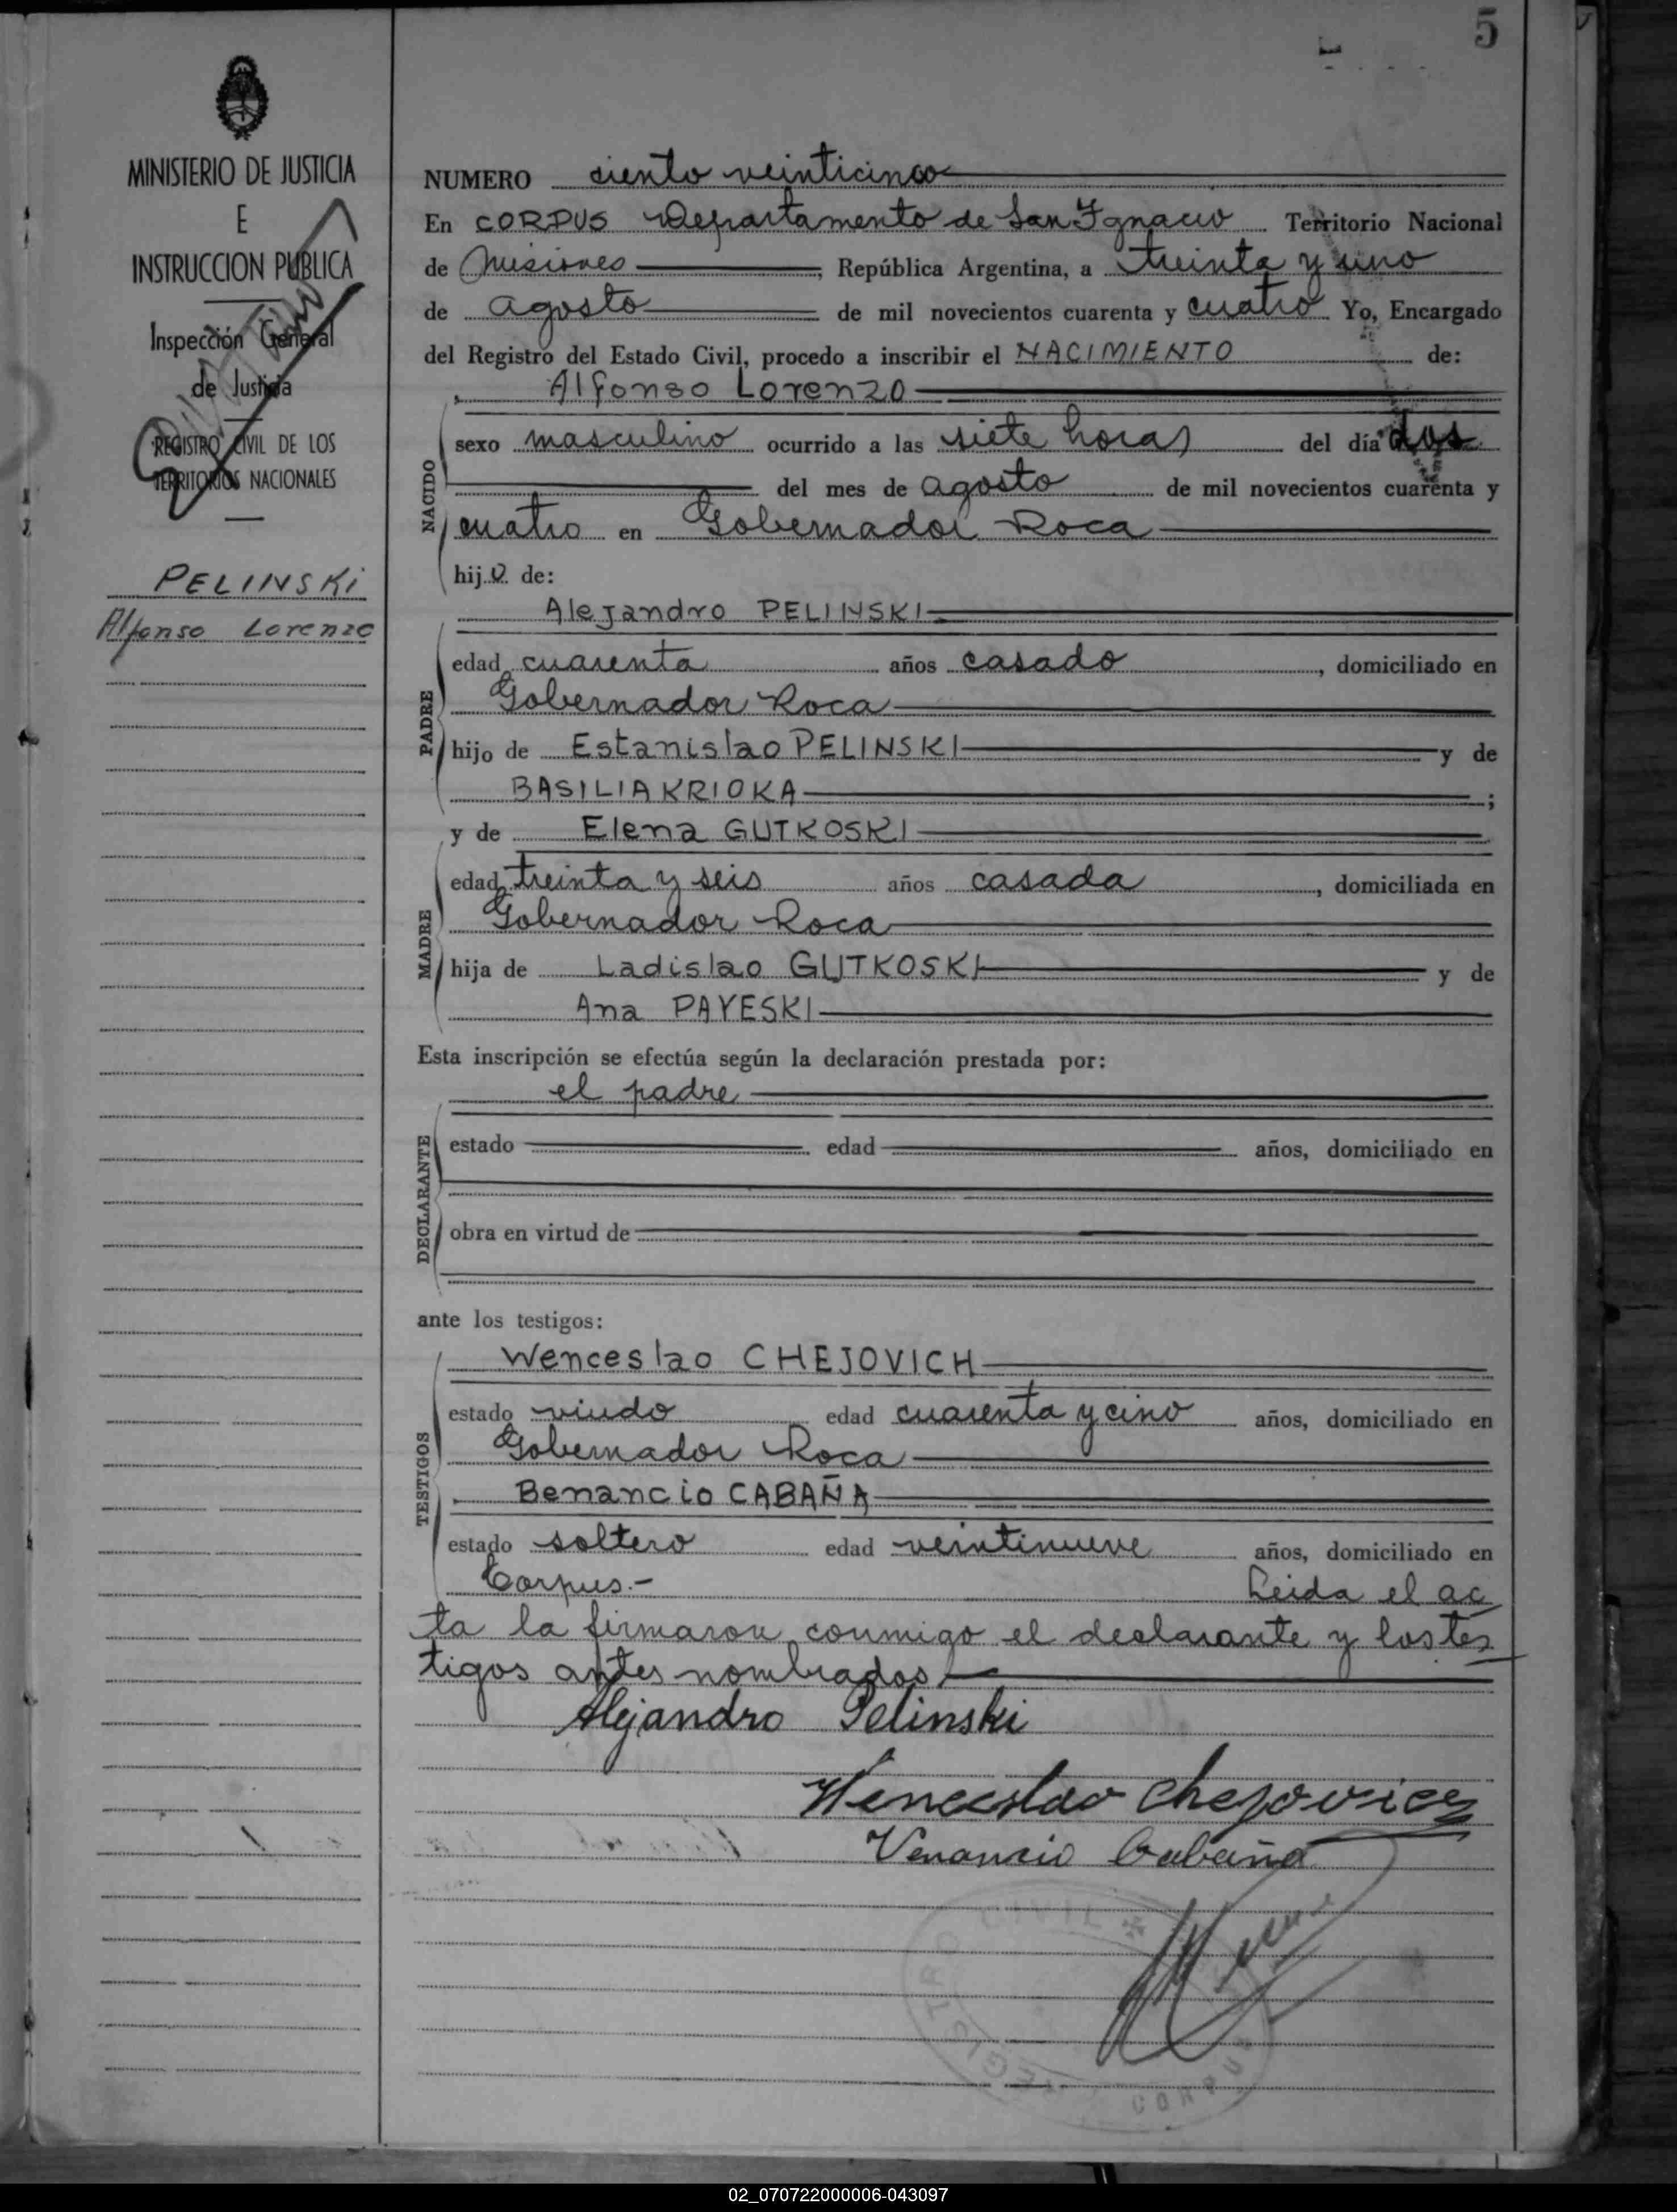 5
MINISTERIO DE JUSTICIA
E
INSTRUCCION PUBLICA
Inspección General
de Justicia
REGISTRO CIVIL DE LOS
TERRITORIOS NACIONALES
PELINSKi
Alfonso Lorenzo
NUMERO siento veinticinco
En CORPUS Departamento de San Ignacio Territorio Nacional
de Misiones, República Argentina, a treinta y uno
de agosto de mil novecientos cuarenta y cuatro Yo, Encargado
del Registro del Estado Civil, procedo a inscribir el NACIMIENTO de:
Alfonso Lorenzo
NACIDO
sexo masculino ocurrido a las siete horas del día dos
del mes de agosto de mil novecientos cuarenta y
cuatro en Gobernador Roca
hijo de:
Alejandro PELINSKI
PADRE
edad cuarenta años casado, domiciliado en
Gobernador Roca
hijo de Estanislao PELINSKI y de
BASILIA KRIOKA;
y de Elena GUTKOSKI
MADRE
edad treinta y seis años casada, domiciliada en
Gobernador Roca
hija de Ladislao GUTKOSKI y de
Ana PAYESKI
Esta inscripción se efectúa según la declaración prestada por:
el padre
DECLARANTE
estado edad años, domiciliado en
obra en virtud de
ante los testigos:
TESTIGOS
Wenceslao CHEJOVICH
estado viudo edad cuarenta y cinco años, domiciliado en
Gobernador Roca
Benancio CABAÑA
estado soltero edad veintinueve años, domiciliado en
Corpus.- Leida el ac
ta la firmaron conmigo el declarante y los tes
tigos antes nombrados.
Alejandro Pelinski
Wenceslao Chejovicz
Venancio Cabaña
REGISTRO CIVIL
CORPUS
02_070722000006-043097